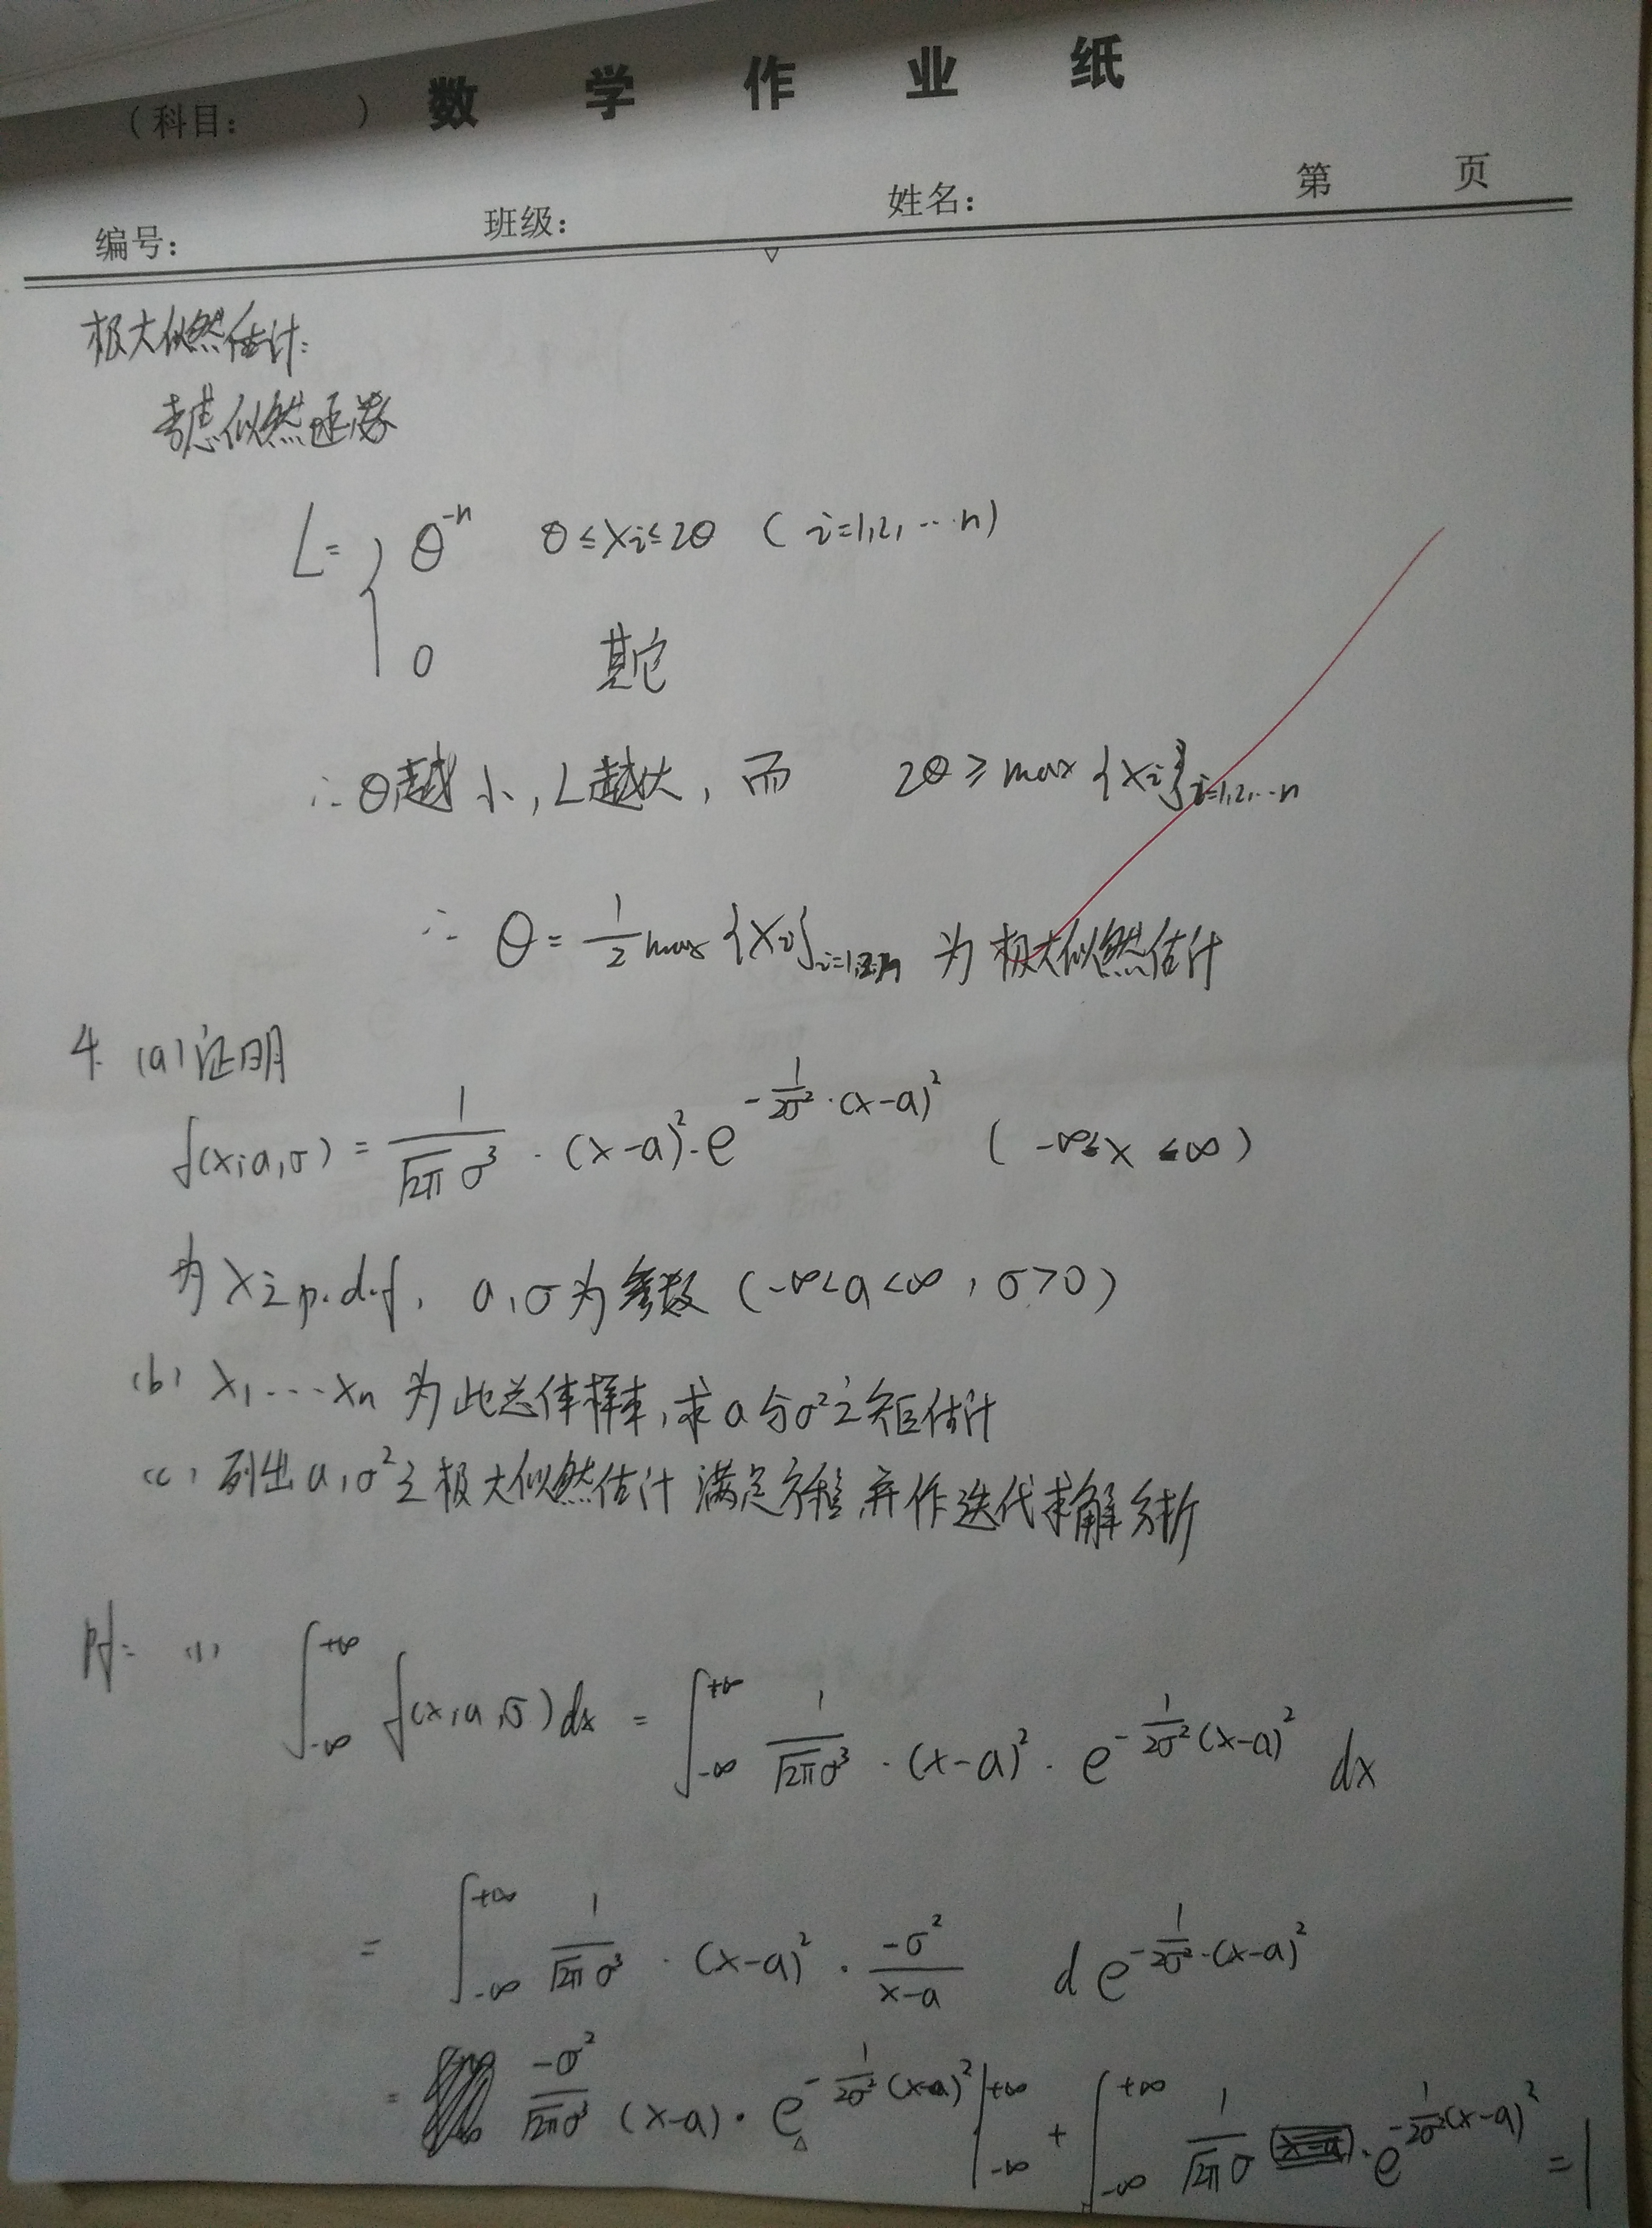 (科目:        ) 数 学 作 业 纸
编号:    班级:    姓名:    第    页
极大似然估计:
考虑似然函数
L= { θ^{-n}  θ≤Xi≤2θ ( i=1,2,…n)
0  其它
∴ θ越小,L越大,而 2θ ≥ max {Xi}_{i=1,2,…n}
∴ θ = 1/2 max {Xi}_{i=1,2…n} 为极大似然估计
4. (a) 证明
f(x;a,σ) = 1/(√2π σ³) · (x-a)² · e^{-1/(2σ²)·(x-a)²} ( -∞≤x≤∞ )
为X之p.d.f, a,σ为参数 (-∞<a<∞, σ>0)
(b) X₁…Xn 为此总体样本,求a与σ²之矩估计
(c) 列出a,σ²之极大似然估计满足方程,并作迭代求解分析
(1) ∫_{-∞}^{+∞} f(x,a,σ)dx = ∫_{-∞}^{+∞} 1/(√2π σ³) · (x-a)² · e^{-1/(2σ²)(x-a)²} dx
= ∫_{-∞}^{+∞} 1/(√2π σ³) · (x-a)² · -σ²/(x-a) d e^{-1/(2σ²)·(x-a)²}
= -σ²/(√2π σ³) (x-a) · e^{-1/(2σ²)(x-a)²} |_{-∞}^{+∞} + ∫_{-∞}^{+∞} 1/(√2π σ) · e^{-1/(2σ²)(x-a)²} = 1